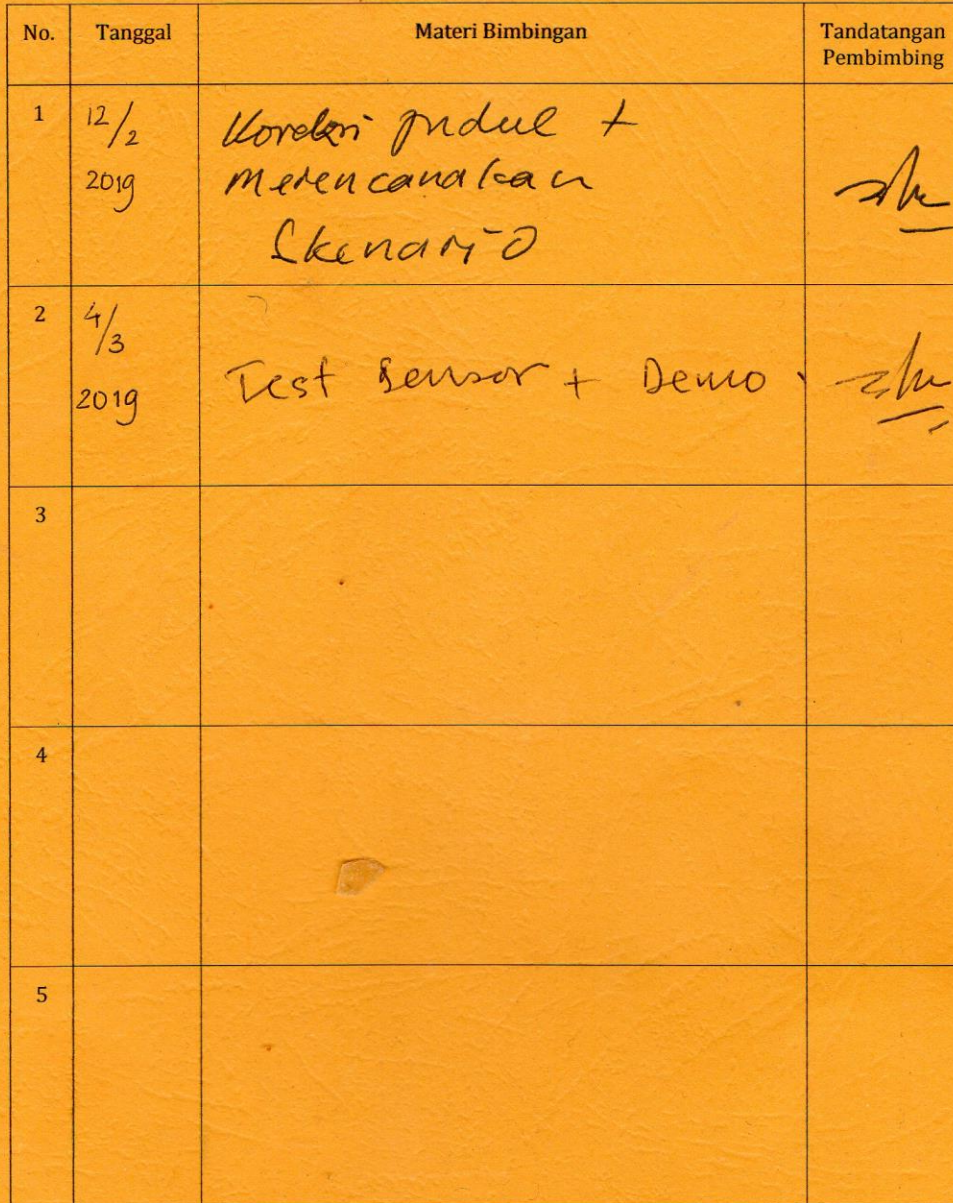 No. Tanggal Materi Bimbingan Tandatangan
Pembimbing
1 12/2 Koreksi judul +
2019 merencanakan
Skenario
2 4/3
2019 Test Sensor + Demo
3
4
5